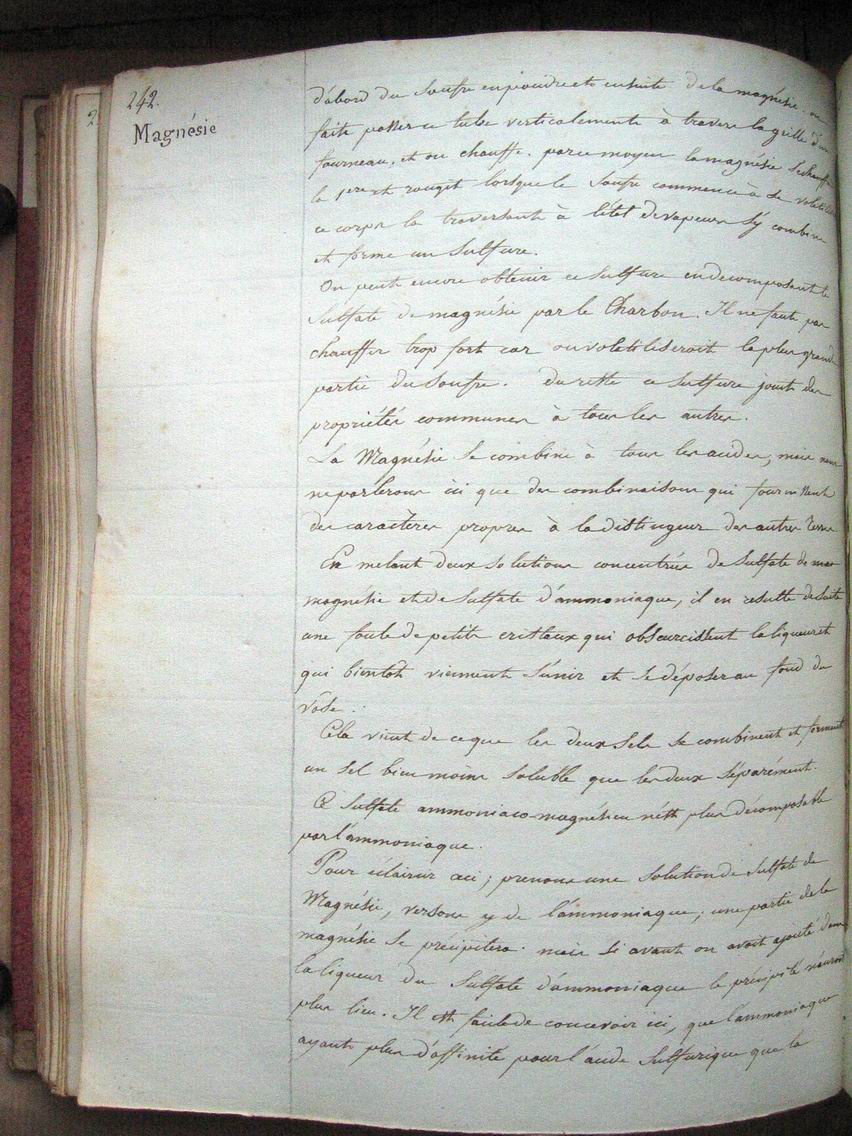 242.
Magnésie
d'abord du Soufre en poudre et ensuite de la magnésie. on
fait passer ce tube verticalement à travers la grille d'un
fourneau, et on chauffe. par ce moyen la magnésie s'échauffe
la 1ere et rougit lorsque le Soufre commence à se volatiliser
ce corps la traversant à l'état de vapeurs s'y combine
et forme un Sulfure.
On peut encore obtenir ce Sulfure en decomposant le
Sulfate de magnésie par le Charbon. Il ne faut pas
chauffer trop fort car on volatiliseroit la plus grande
partie du Soufre. Du reste ce Sulfure jouit des
propriétés communes à tous les autres.
La Magnésie se combine à tous les acides, mais nous
ne parlerons ici que des combinaisons qui fournissent
des caractères propres à la distinguer des autres Terres
En melant deux solutions concentrées de Sulfate de
magnésie et de Sulfate d'ammoniaque, il en resulte de suite
une foule de petits cristaux qui obscurcissent la liqueur et
qui bientot viennent s'unir et se déposer au fond du
vase.
Cela vient de ce que les deux Sels se combinent et forment
un sel bien moins soluble que les deux séparément.
Ce Sulfate ammoniaco-magnésien n'est plus décomposable
par l'ammoniaque.
Pour éclaircir ceci; prenons une solution de Sulfate de
Magnésie, versons y de l'ammoniaque; une partie de la
magnésie se précipitera. mais si avant on avoit ajouté dans
la liqueur du Sulfate d'ammoniaque le précipité n'auroit
plus lieu. Il est facile de concevoir ici, que l'ammoniaque
ayant plus d'affinité pour l'acide Sulfurique que la